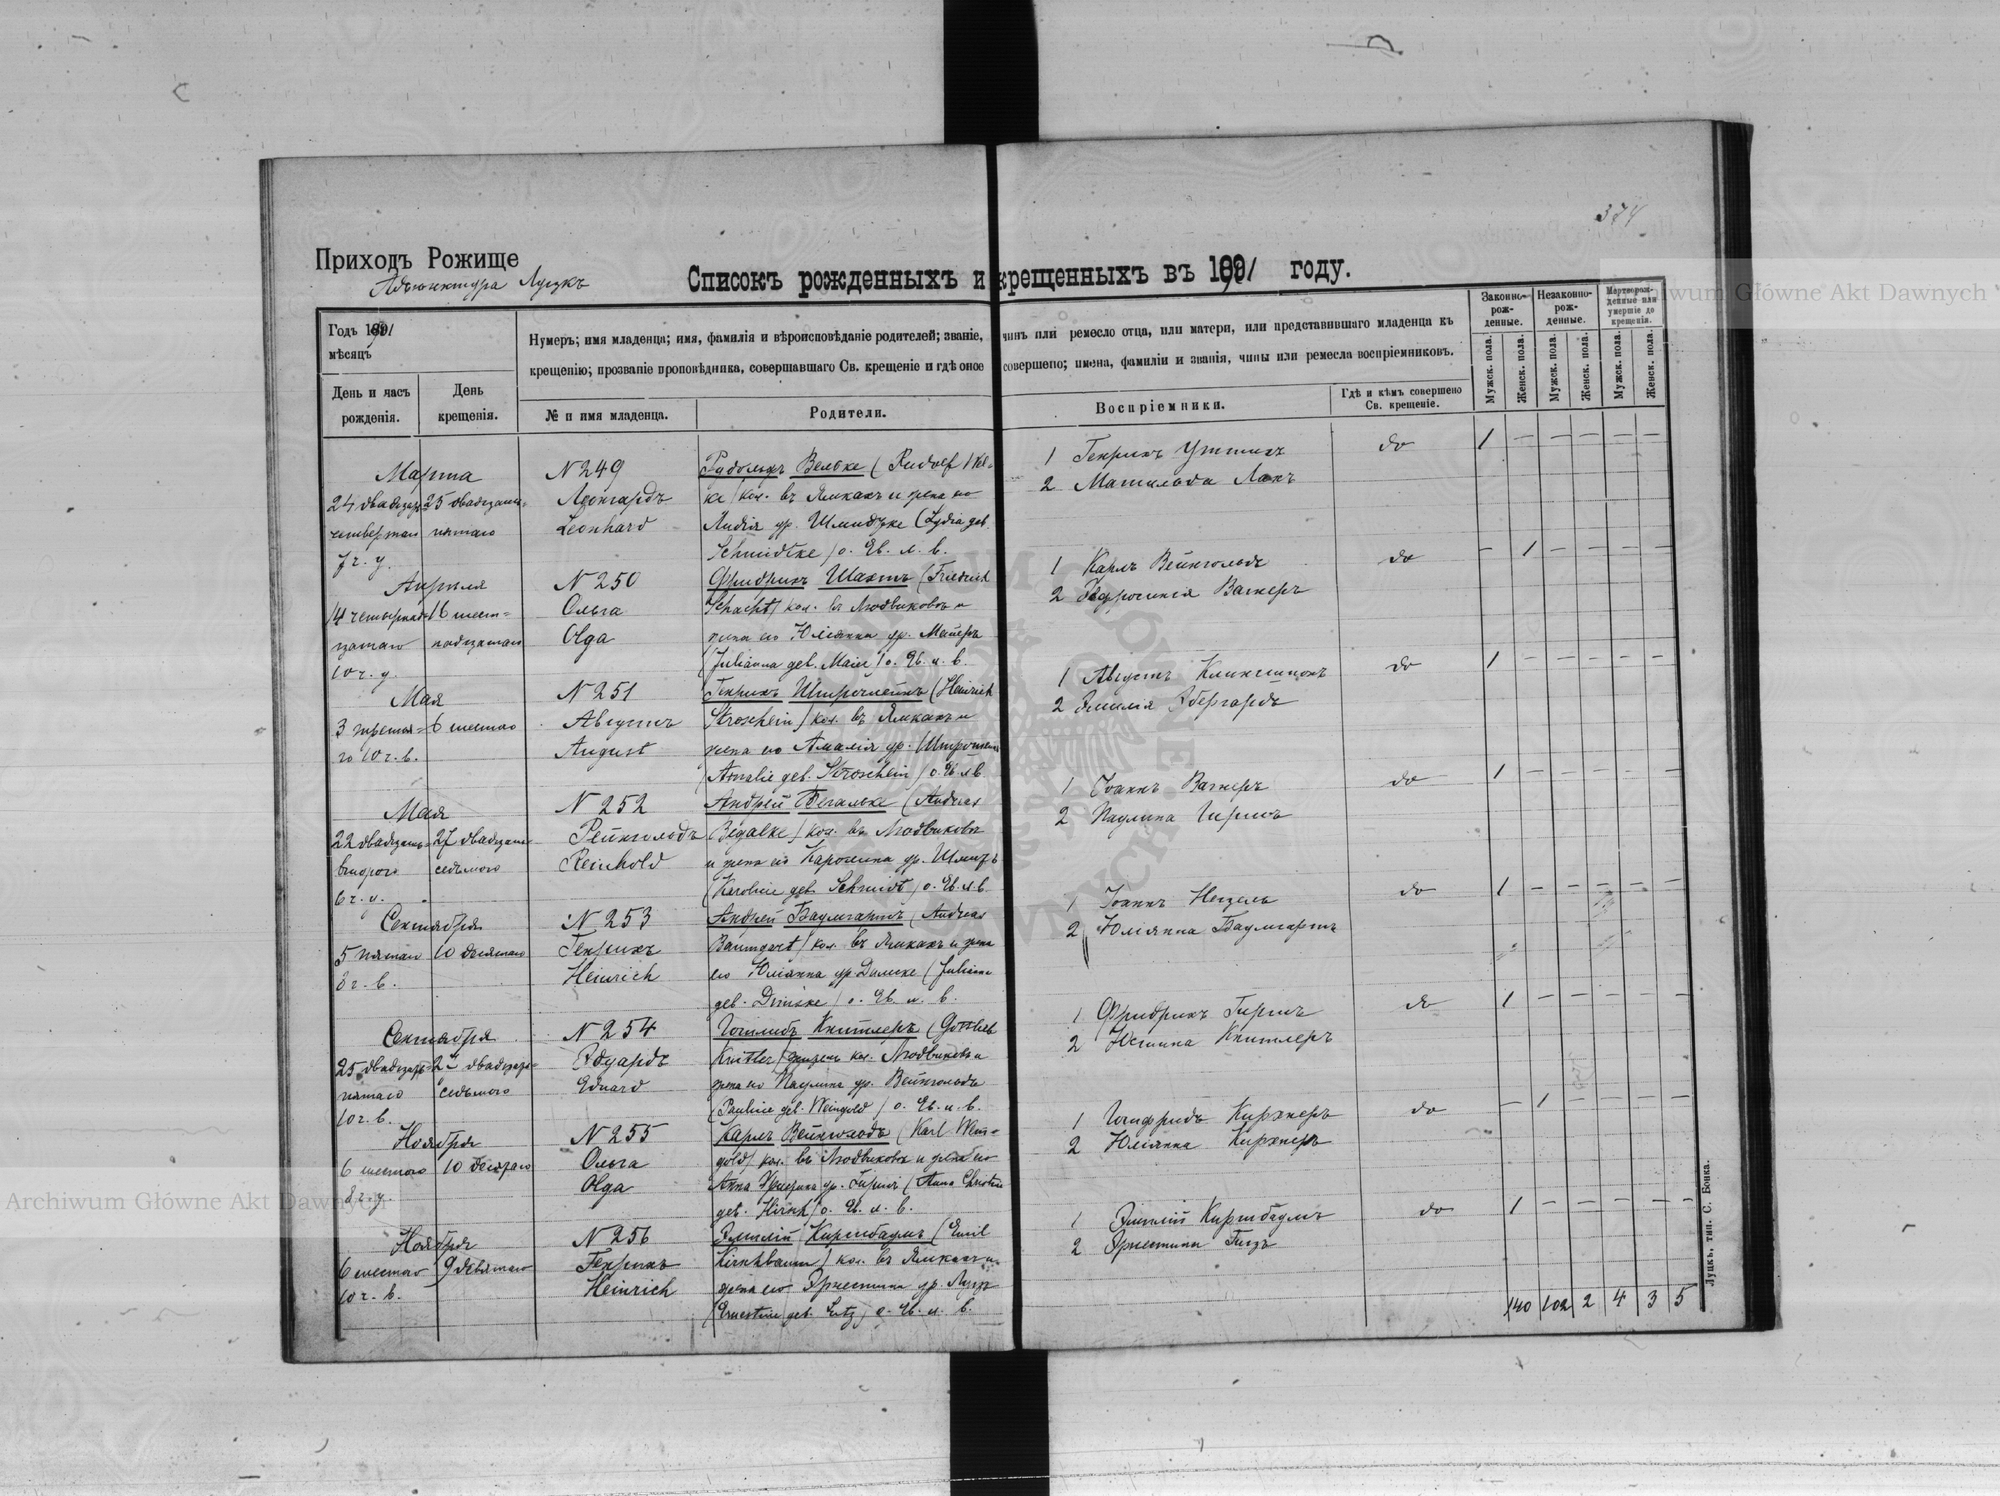 374
Приходъ Рожище
Адъюнктура Луцкъ
Списокъ рожденныхъ и крещенныхъ въ 1891 году.
Годъ 1891
мѣсяцъ
День и часъ рожденія.
День крещенія.
Нумеръ; имя младенца; имя, фамилія и вѣроисповѣданіе родителей; званіе, чинъ или ремесло отца, или матери, или представившаго младенца къ
крещенію; прозваніе проповѣдника, совершавшаго Св. крещеніе и гдѣ оное совершено; имена, фамиліи и званія, чины или ремесла воспріемниковъ.
№ и имя младенца.
Родители.
Воспріемники.
Гдѣ и кѣмъ совершено Св. крещеніе.
Законно-рож-денные.
Незаконно-рож-денные.
Мертворож-денные или умершіе до крещенія.
Мужск. пола.
Женск. пола.
Мужск. пола.
Женск. пола.
Мужск. пола.
Женск. пола.
Марта
24 двадцать 25 двадцать
четвертаго пятаго
7 ч. у.
N 249
Леонгардъ
Leonhard
Рудольфъ Вельке (Rudolf Wel-
ke) кол. въ Ямкахъ и жена его
Лидія ур. Шмидтке (Lydia geb.
Schmidtke) о. Ев. л. в.
1 Генрихъ Уттихъ
2 Матильда Лакъ
do
1 — — — — —
Апрѣля
14 четырнад- 16 шест-
цатаго надцатаго
10 ч. у.
N 250
Ольга
Olga
Фридрихъ Шахтъ (Friedrich
Schacht) кол. въ Людвиковѣ и
жена его Юліянна ур. Майеръ
(Julianna geb. Maier) о. Ев. л. в.
1 Карлъ Вейнгольдъ
2 Вагнеръ
do
— 1 — — — —
Мая
3 третья- 6 шестаго
го 10 ч. в.
N 251
Августъ
August
Генрихъ Штрошейнъ (Heinrich
Stroschein) кол. въ Ямкахъ и
жена его Амалія ур. Штрошейнъ
(Amalie geb. Stroschein) о. Ев. л. в.
1 Августъ
2 Эмилія Эбергардъ
do
1 — — — — —
Мая
22 двадцать 27 двадцать
втораго седьмого
6 ч. у.
N 252
Рейнгольдъ
Reinhold
Андрей Бегальке (Andreas
Begalke) кол. въ Людвиковѣ
и жена его Каролина ур. Шмидтъ
(Karoline geb. Schmidt) о. Ев. л. в.
1 Іоаннъ Вагнеръ
2 Паулина Гиршъ
do
1 — — — — —
Сентября
5 пятаго 10 десятаго
8 ч. в.
N 253
Генрихъ
Heinrich
Андрей Баумгартъ (Andreas
Baumgart) кол. въ Ямкахъ и жена
его Юліянна ур. Димске (Juliane
geb. Dimske) о. Ев. л. в.
1 Іоаннъ Нецель
2 Юліянна Баумгартъ
do
1 — — — — —
Сентября
25 двадцать 27 двадцать
пятаго седьмого
10 ч. в.
N 254
Эдуардъ
Eduard
Готлибъ Книтлеръ (Gottlieb
Knitler) кол. Людвиковѣ и
жена его Паулина ур. Вейнгольдъ
(Pauline geb. Weingold) о. Ев. л. в.
1 Фридрихъ Гиршъ
2 Юстина Книтлеръ
do
1 — — — — —
Ноября
6 шестаго 10 десятаго
8 ч. у.
N 255
Ольга
Olga
Карлъ Вейнгольдъ (Karl Wein-
gold) кол. въ Людвиковѣ и жена его
Анна ур. Гиршъ (Anna Christine
geb. Hirsch) о. Ев. л. в.
1 Готфридъ Кирхнеръ
2 Юліянна Кирхнеръ
do
— 1 — — — —
Ноября
6 шестаго 9 девятаго
10 ч. в.
N 256
Генрихъ
Heinrich
Эмилій Киршбаумъ (Emil
Kirschbaum) кол. въ Ямкахъ и
жена его Эрнестина ур. Луцъ
(Ernestine geb. Lutz) о. Ев. л. в.
1 Эмилій Киршбаумъ
2 Эрнестина
do
1 — — — — —
140 102 2 4 3 5
Луцкъ, тип. С. Бонка.
Archiwum Główne Akt Dawnych
Archiwum Główne Akt Dawnych